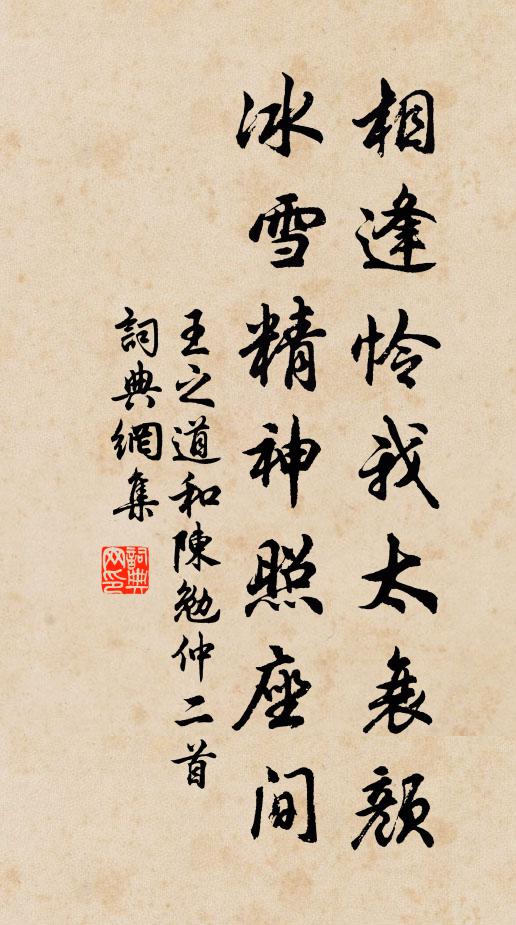 相逢怜我太衰颜
冰雪精神照座間
王之道和陳勉仲二首
詞典網集
詞典網印